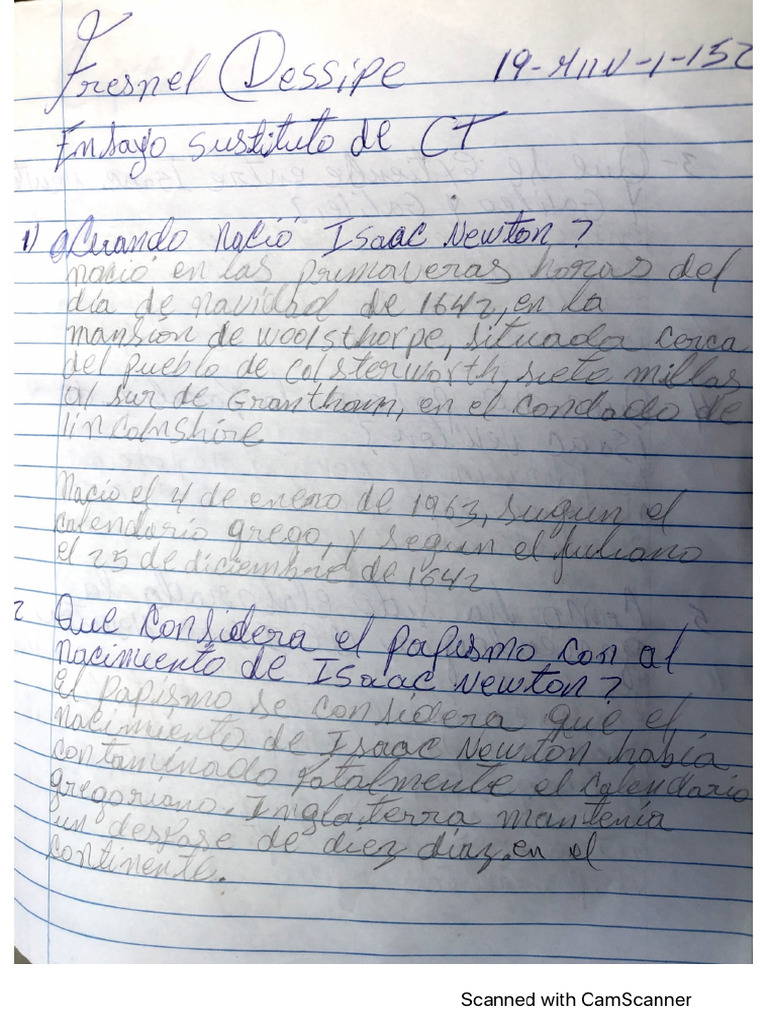 Fresnel Dessipe 19-MIIN-1-152
Ensayo sustituto de CT
1) ¿Cuando nació Isaac Newton?
nació en las primaveras horas del
día de navidad de 1642, en la
mansión de woolsthorpe, situada cerca
del pueblo de colsterworth, siete millas
al sur de Grantham, en el condado de
lincolnshire
Nacio el 4 de enero de 1963, sugun el
calendario grego, y segun el Juliano
el 25 de diciembre de 1642
2 Que considera el papismo con al
nacimiento de Isaac Newton?
el papismo se considera que el
nacimiento de Isaac Newton había
contaminado fatalmente el calendario
gregoriano. Inglaterra mantenía
un desfase de diez díaz. en el
continente.
Scanned with CamScanner